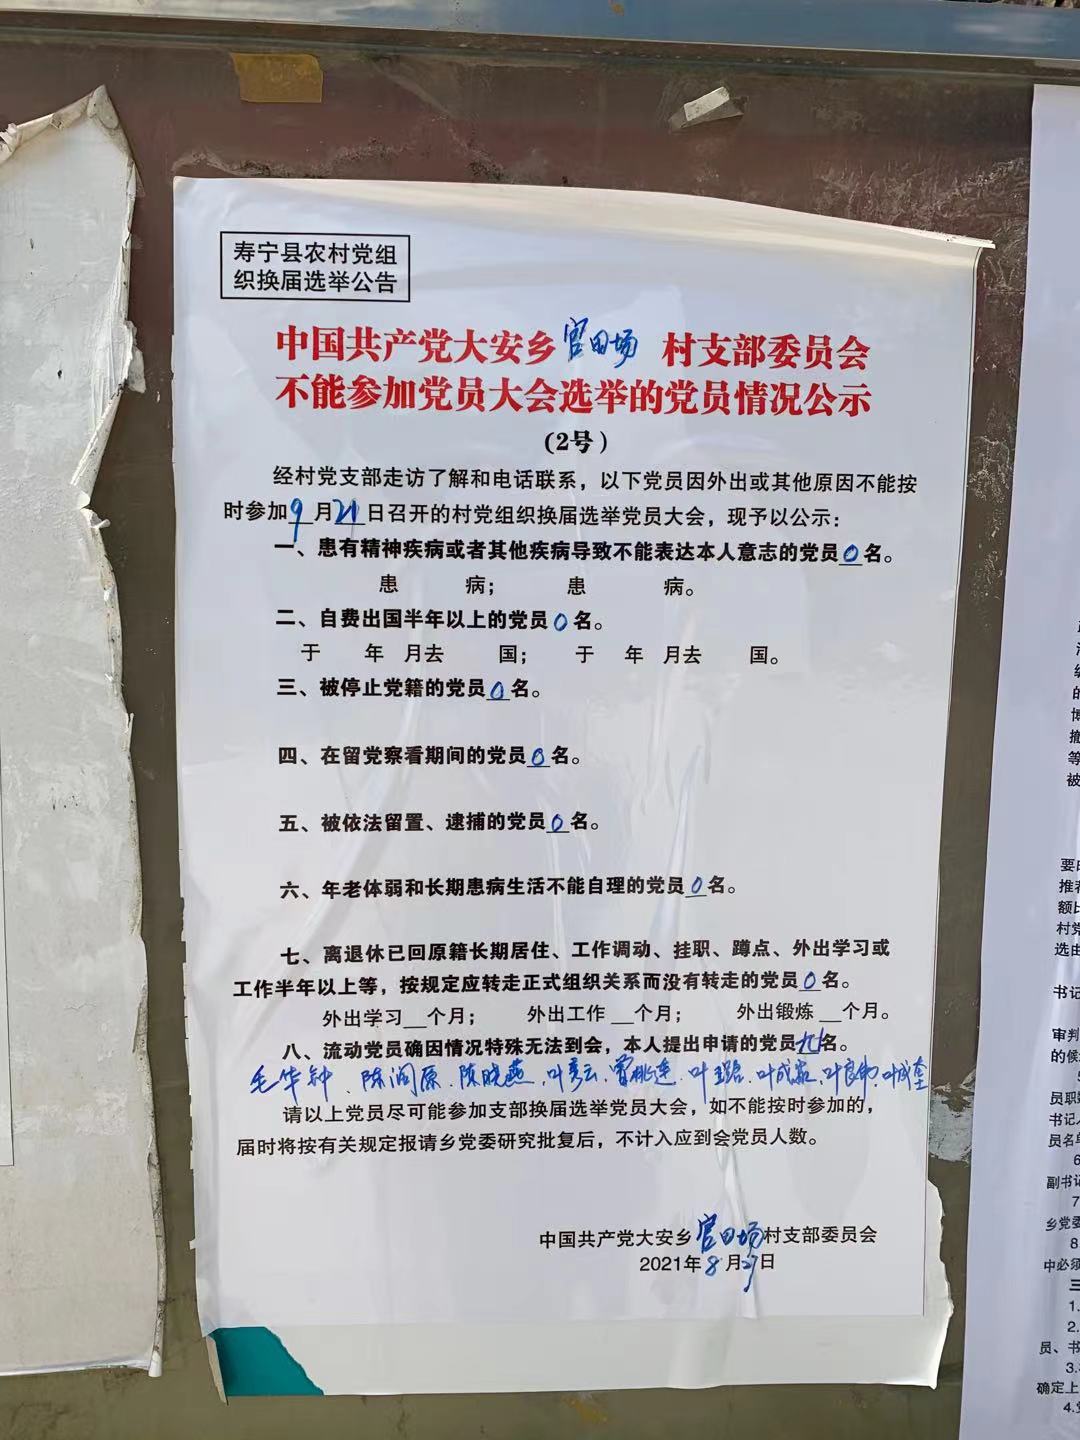 寿宁县农村党组
织换届选举公告
中国共产党大安乡官田场村支部委员会
不能参加党员大会选举的党员情况公示
(2号)
经村党支部走访了解和电话联系，以下党员因外出或其他原因不能按
时参加9月21日召开的村党组织换届选举党员大会，现予以公示：
一、患有精神疾病或者其他疾病导致不能表达本人意志的党员0名。
患 病； 患 病。
二、自费出国半年以上的党员0名。
于 年 月去 国； 于 年 月去 国。
三、被停止党籍的党员0名。
四、在留党察看期间的党员0名。
五、被依法留置、逮捕的党员0名。
六、年老体弱和长期患病生活不能自理的党员0名。
七、离退休已回原籍长期居住、工作调动、挂职、蹲点、外出学习或
工作半年以上等，按规定应转走正式组织关系而没有转走的党员0名。
外出学习__个月； 外出工作__个月； 外出锻炼__个月。
八、流动党员确因情况特殊无法到会，本人提出申请的党员 名。
毛华钟、陈润原、陈晓燕、叶秀云、曾桃莲、叶 、叶成 、叶良 、叶成奎
请以上党员尽可能参加支部换届选举党员大会，如不能按时参加的，
届时将按有关规定报请乡党委研究批复后，不计入应到会党员人数。
中国共产党大安乡官田场村支部委员会
2021年8月27日
要
推荐
额比
村党
选由
书记
审判
的候
员职
书记
员名单
6
副书记
7
乡党委
8
中必须
三
1.
2.
员、书
3.
确定上
4.